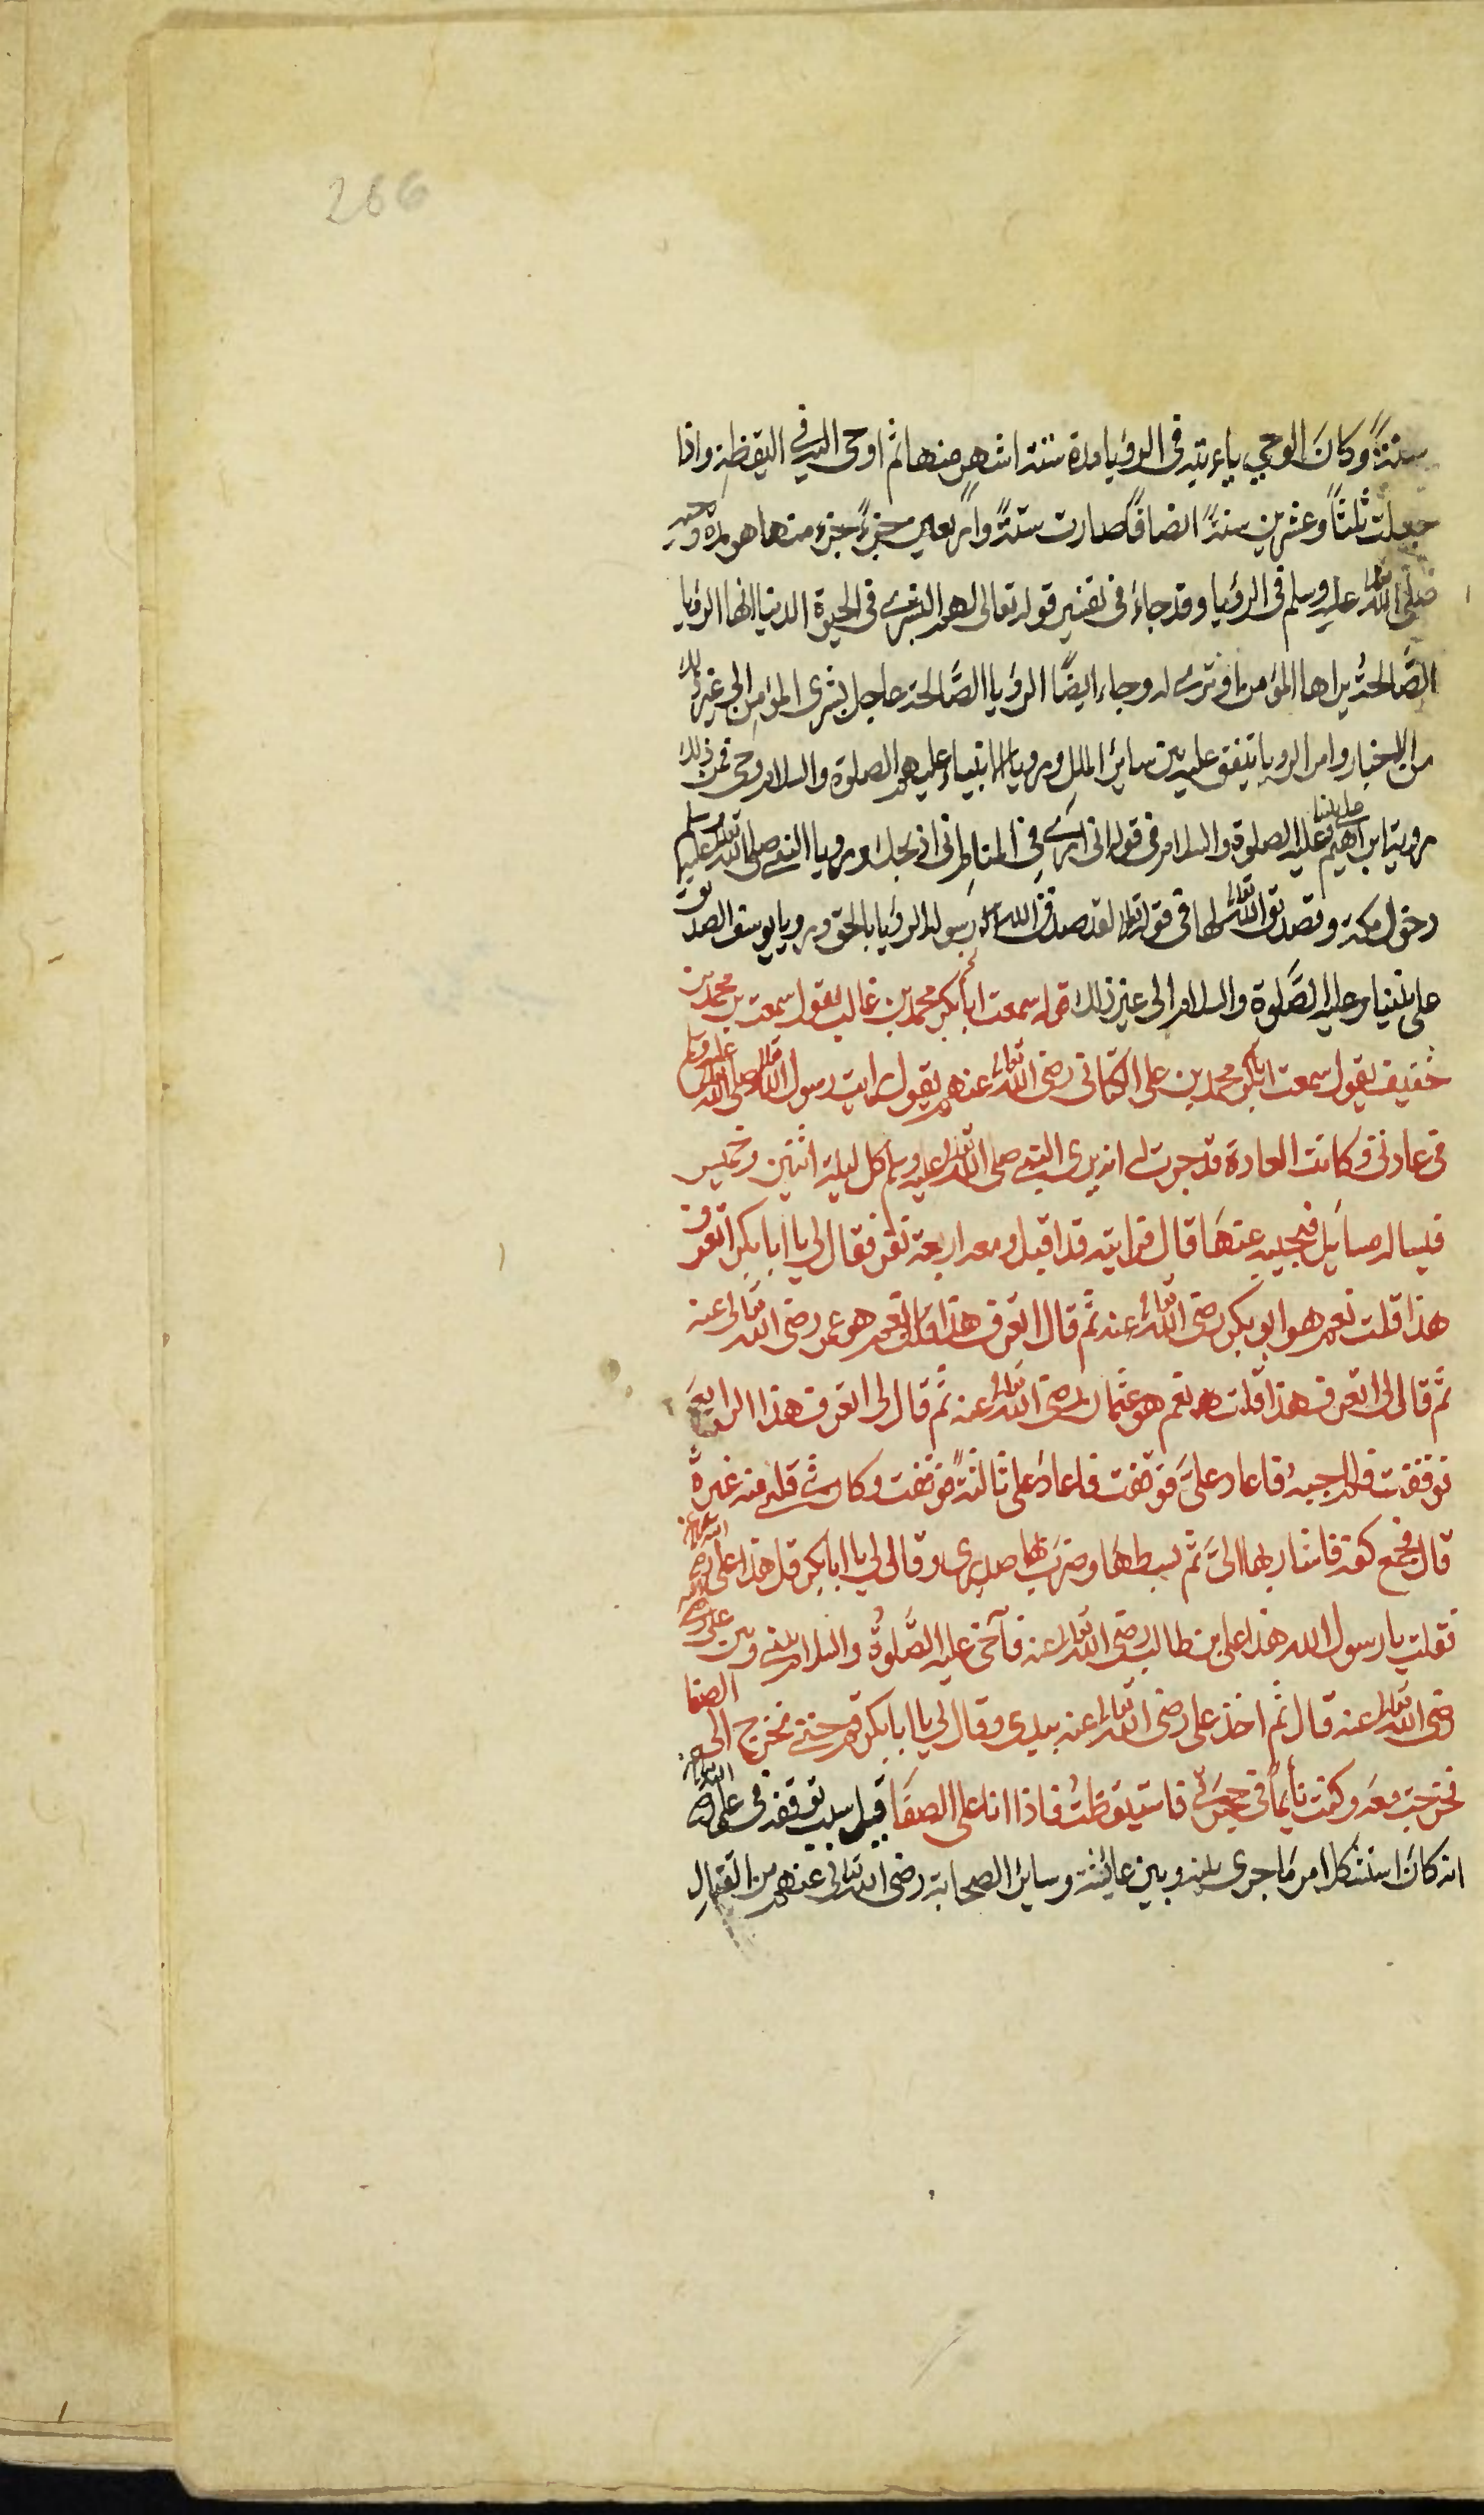 266
سنةً وكانَ الوحي ياءتيه فى الرؤيا مدة ستة اشهرٍ منها ثم اوحى اليه في اليقظةِ واذا
جعلت ثلثاً وعشرين سنةً انصافًا صارت ستةً واربعين جزءً جزء منها هو مدة وحيه
صلى الله تعالى عليه وسلم فى الرؤيا وقد جاءَ فى تفسير قوله تعالى لهم البشرى فى الحيوة الدنيا انها الرؤيا
الصَّالحةُ يراها المؤمن او ترى له وجاء ايضًا الرؤيا الصَّالحة عاجل بشرى المؤمن الى غير ذلك
من الاخبار وامر الرويا يتفق عليه بين سائر الملل ورويا الانبياء عليهم الصلوة والسلام وحى فمن ذلك
رويا ابراهيم على نبينا وعليه الصلوة والسلام فى قوله انى ارى فِى المنامِ انى اذبحك ورويا النبي صلى الله تعالى عليه وسلم
دخول مكة وتصديق الله تعالى لها فى قوله تعالى لقد صدق الله رسوله الرؤيا بالحق ورويا يوسف الصديق
على نبينا وعليه الصَّلوة والسلام الى غير ذلك قوله سمعت ابابكر محمد بن غالب يقول سمعت محمد بن
خفيف يقول سمعت ابابكر محمد بن على الكتانى رضى الله تعالى عنهم يقول رايت رسول الله صلى الله تعالى عليه وسلم
فى عادتى وكانت العادة قد جرت له انه يرى النبى صلى الله تعالى عليه وسلم كل ليلة اثنين وخميس
فيساله مسايل فيجيبه عنهَا قال فرايته قد اقبل ومعه اربعة نفر فقال لى يا ابابكر اتعرف
هذا قلت نعم هو ابو بكر رضى الله تعالى عنه ثم قال اتعرف هذا قلت نعم هو عمر رضى الله تعالى عنه
ثم قال لى اتعرف هذا قلت نعم هو عثمان رضى الله تعالى عنه ثم قال لى اتعرف هذا الرابع
توقفت فلم اجبه فاعاد علىَّ فتوقفت فاعاد على ثالثةً فوقفت وكان فى قلبى منه غيرة
قال فجمع كفه فاشار بها الىَّ ثم بسطهَا وضرب بها صدرى وقال لى يا ابابكر قل هذا على رضى الله تعالى عنه
فقلت يا رسول الله هذا على بن طالب رضى الله تعالى عنه فآخى عليه الصَّلوةُ والسلام بينى وبين على
رضى الله تعالى عنه قال ثم اخذ على رضى الله تعالى عنه بيدى وقال لى يا ابابكر قم حتى نخرج الى الصفا
فخرجت معه وكنت نايماً فى حجرتى فاستيقظتُ فاذا انا على الصفَا قيل سبب توقفه فى على رضى الله تعالى عنه
انه كانَ استشكل امر مَا جرى بينه وبين عائشة وسائر الصحابة رضى الله تعالى عنهم من القتالِ